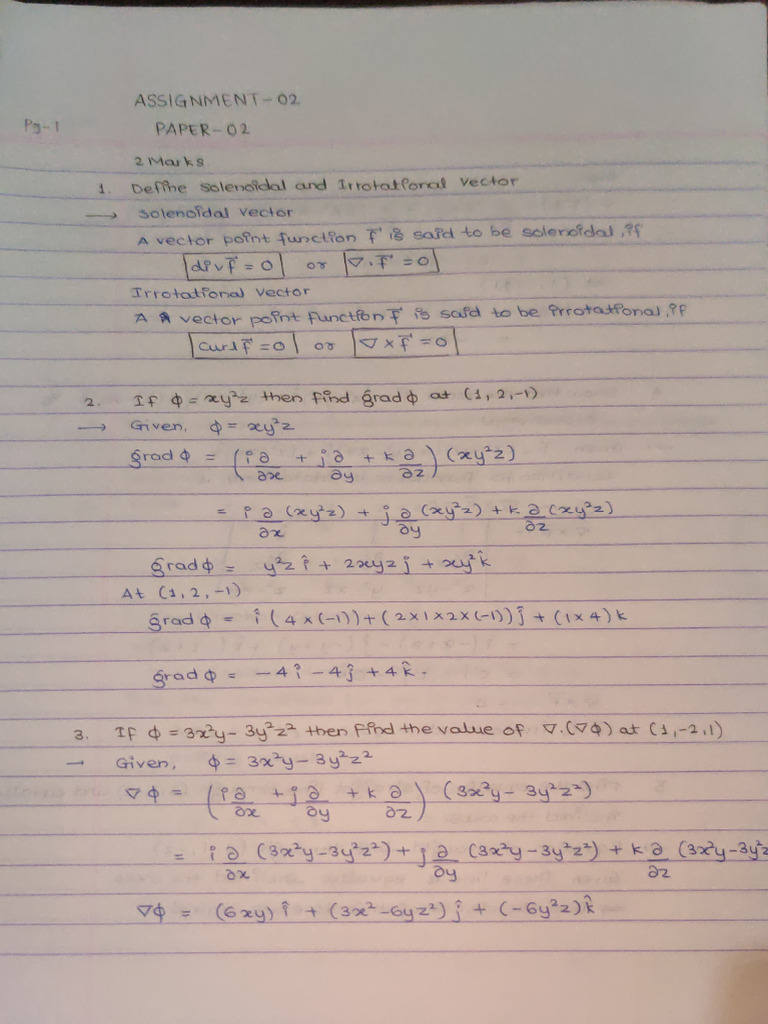 ASSIGNMENT-02
Pg-1
PAPER-02
2 Marks
1. Define solenoidal and Irrotational vector
→ solenoidal vector
A vector point function f⃗ is said to be solenoidal, if
div f⃗ = 0 or ∇·f⃗ = 0
Irrotational vector
A vector point function f⃗ is said to be irrotational, if
curl f⃗ = 0 or ∇×f⃗ = 0
2. If ϕ = xy²z then find grad ϕ at (1, 2, -1)
→ Given, ϕ = xy²z
grad ϕ = (i ∂/∂x + j ∂/∂y + k ∂/∂z) (xy²z)
= i ∂/∂x (xy²z) + j ∂/∂y (xy²z) + k ∂/∂z (xy²z)
grad ϕ = y²z î + 2xyz j + xy² k̂
At (1, 2, -1)
grad ϕ = î (4×(-1)) + (2×1×2×(-1)) ĵ + (1×4) k
grad ϕ = -4 î - 4 ĵ + 4 k̂.
3. If ϕ = 3x²y - 3y²z² then find the value of ∇·(∇ϕ) at (1, -2, 1)
→ Given, ϕ = 3x²y - 3y²z²
∇ϕ = (i ∂/∂x + j ∂/∂y + k ∂/∂z) (3x²y - 3y²z²)
= i ∂/∂x (3x²y - 3y²z²) + j ∂/∂y (3x²y - 3y²z²) + k ∂/∂z (3x²y - 3y²z
∇ϕ = (6xy) î + (3x² - 6yz²) ĵ + (-6y²z) k̂